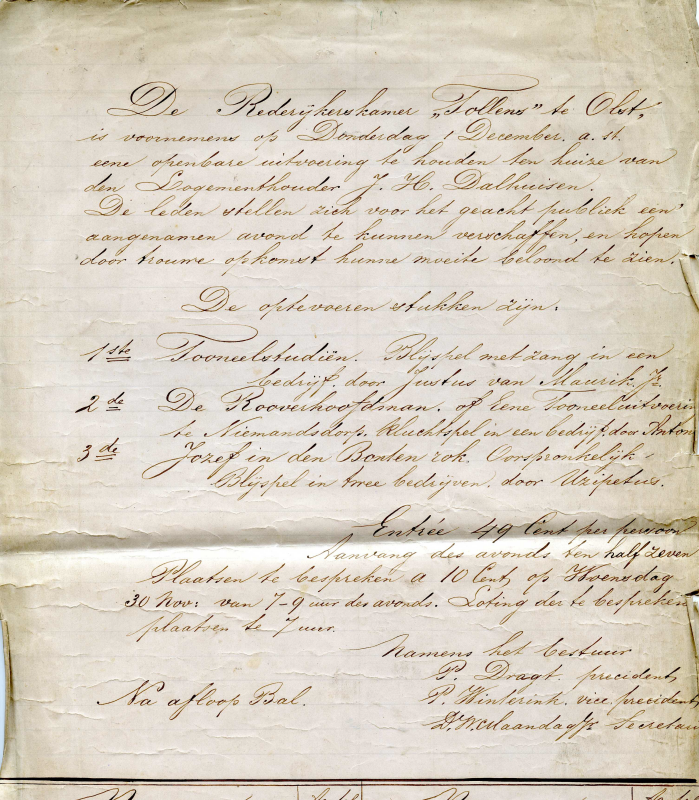 De Rederijkerskamer „Tollens" te Olst,
is voornemens op Donderdag 1 December. a. st.
eene openbare uitvoering te houden ten huize van
den Logementhouder J. H. Dalhuisen.
De leden stellen zich voor het geacht publiek een
aangenamen avond te kunnen verschaffen, en hopen
door trouwe opkomst hunne moeite beloond te zien.
De optevoeren stukken zijn:
1ste Tooneelstudiën. Blijspel met zang in een
bedrijf. door Justus van Maurik. Jr
2de De Rooverhoofdman. of Eene Tooneeluitvoeri
te Niemandsdorp. Kluchtspel in een bedrijf, door Antom
3de Jozef in den Bonten rok. Oorspronkelijk
Blijspel in twee bedrijven. door Uzipetus.
Entrée 49 Cent per persoon
Aanvang des avonds ten half zeven
Plaatsen te bespreken a 10 Cent, op Woensdag
30 Nov: van 7-9 uur des avonds. Loting der te bespreken
plaatsen te 7 uur.
Namens het bestuur
P. Dragt. precident,
Na afloop Bal.
P. Winterink. vice. precident,
Secretari